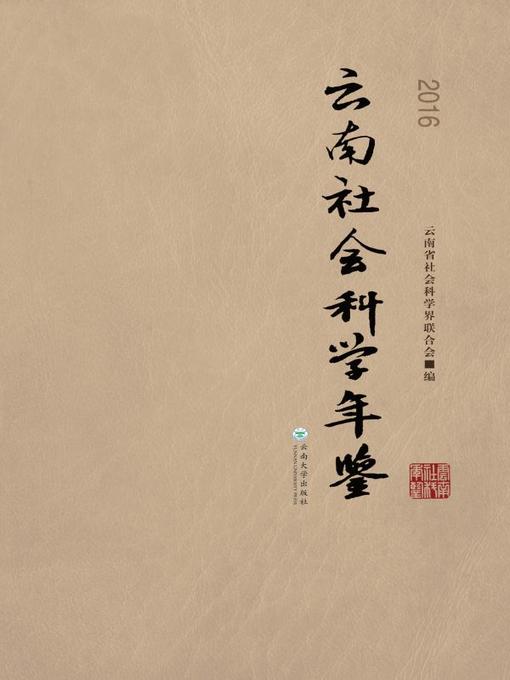 2016
云南社会科学年鉴
云南省社会科学界联合会■编
云南大学出版社
YUNNAN UNIVERSITY PRESS
雲南
社科
年鑒